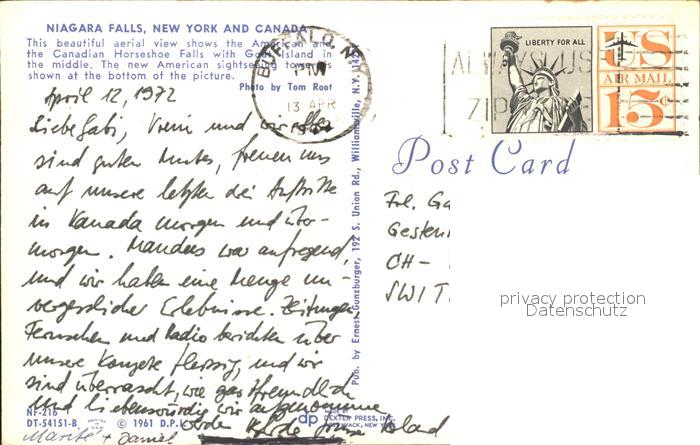 NIAGARA FALLS, NEW YORK AND CANADA
This beautiful aerial view shows the American and
the Canadian Horseshoe Falls with Goat Island in
the middle. The new American sightseeing tower is
shown at the bottom of the picture.
Photo by Tom Root
BUFFALO, N.Y.
PM
13 APR
ALWAYS USE
ZIP
LIBERTY FOR ALL
US
AIR MAIL
15c
Post Card
April 12, 1972
Liebe Gabi, Vreni und wir alle
sind guten Mutes, freuen uns
auf unsere letzten drei Auftritte
in Kanada morgen und über-
morgen. Manches war aufregend,
und wir haben eine Menge un-
vergesslicher Erlebnisse. Zeitungen,
Fernsehen und Radio berichten über
unsere Konzerte fleissig, und wir
sind überrascht, wie gastfreundlich
und liebenswürdig wir aufgenommen
Roland
+ Daniel
Frl. Ga
CH-
SWIT
Pub. by Ernest Gunzburger, 192 S. Union Rd., Williamsville, N.Y. 142
NF-216
DT-54151-B
© 1961 D.P.I.
dp
DEXTER PRESS, INC.
NYACK, NEW YORK
privacy protection
Datenschutz